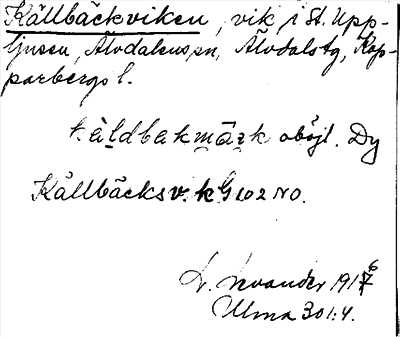 Källbäckviken, vik i St. Upp-
ljusen, Älvdalens sn, Älvdals tg, Kop-
parbergs l.
kä̀ldbakmäzk obøjl. Dy
Källbäcksv. k G 102 NO.
L. Levander 1916
Ulma 301:4.